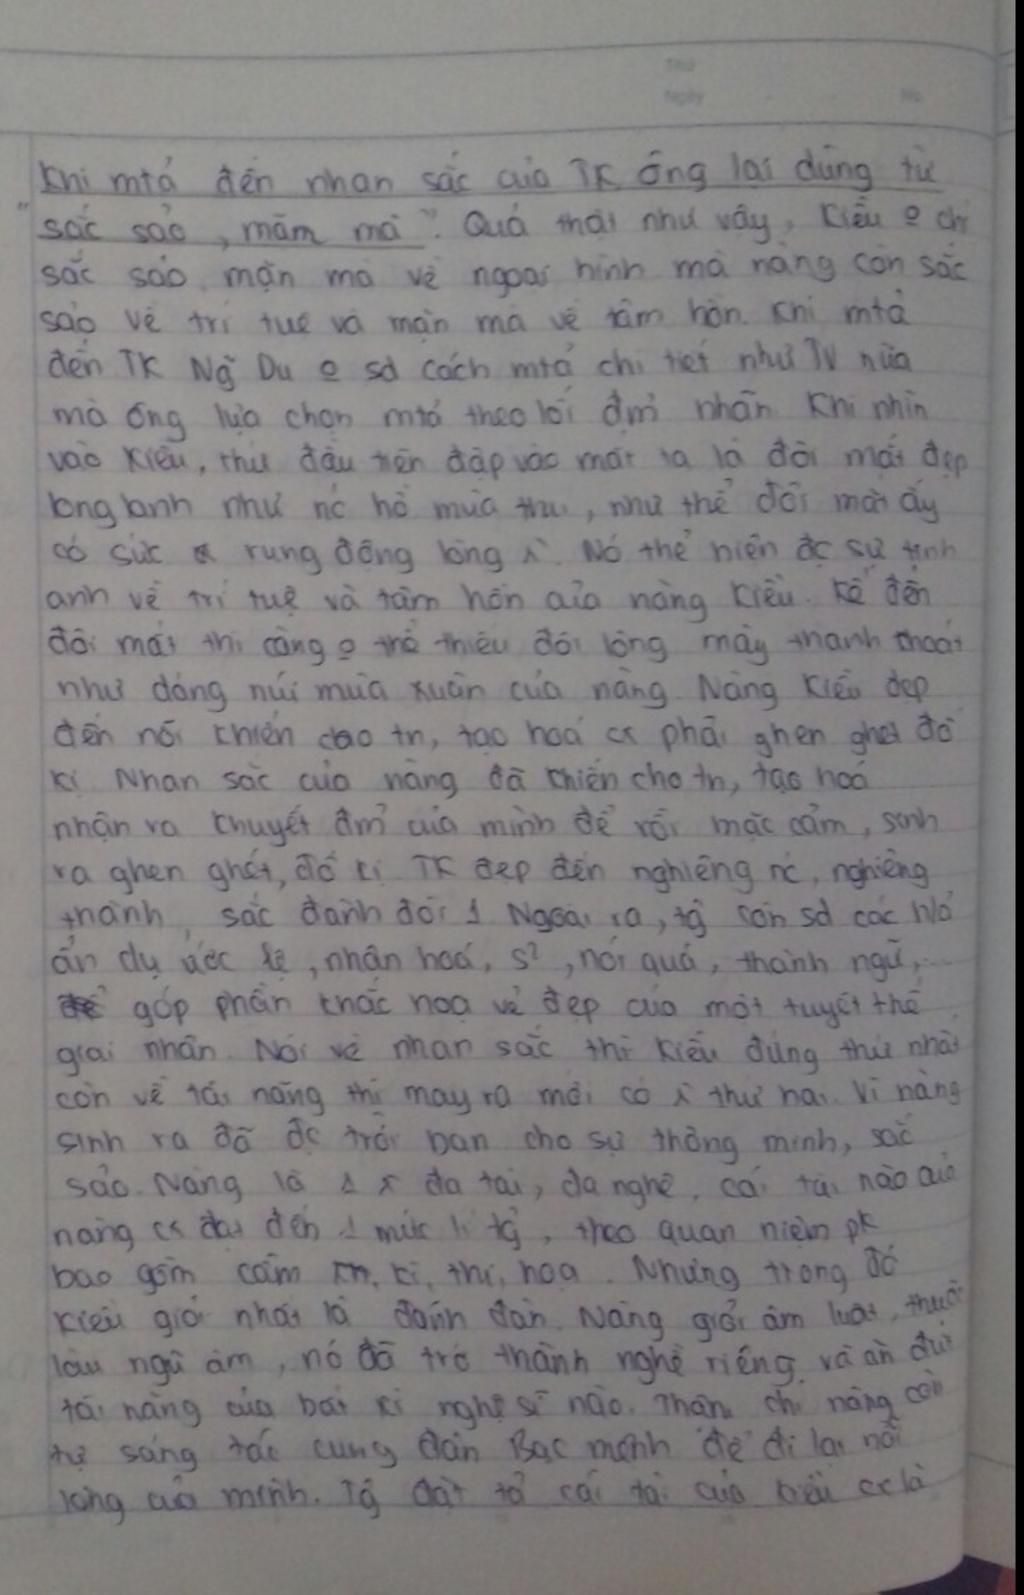 Thứ
Ngày No
Khi mtả đến nhan sắc của TK ông lại dùng từ
"sắc sảo, mặm mà". Quả thật như vậy, Kiều o chỉ
sắc sảo, mặn mà về ngoại hình mà nàng còn sắc
sảo về trí tuệ và mặn mà về tâm hồn. Khi mtả
đến TK Ng~ Du o sd cách mtả chi tiết như TV nữa
mà ông lựa chọn mtả theo lối đm' nhãn. Khi nhìn
vào Kiều, thứ đầu tiên đập vào mắt ta là đôi mắt đẹp
long lanh như nc hồ mùa thu, như thể đôi mắt ấy
có sức rung động lòng . Nó thể hiện đc sự tinh
anh về trí tuệ và tâm hồn của nàng Kiều. Kể đến
đôi mắt thì càng o thể thiếu đôi lông mày thanh thoát
như dáng núi mùa xuân của nàng. Nàng Kiều đẹp
đến nỗi khiến cho tn, tạo hoá cx phải ghen ghét đố
kị. Nhan sắc của nàng đã khiến cho tn, tạo hoá
nhận ra khuyết đm' của mình để rồi mặc cảm, sinh
ra ghen ghét, đố kị. TK đẹp đến nghiêng nc, nghiêng
thành, sắc đành đòi 1. Ngoài ra, tg~ còn sd các
ẩn dụ ước lệ, nhân hoá, s², nói quá, thành ngữ,...
góp phần khắc hoạ vẻ đẹp của một tuyệt thế
giai nhân. Nói về nhan sắc thì Kiều đứng thứ nhất
còn về tài năng thì may ra mới có thứ hai. Vì nàng
sinh ra đã đc trời ban cho sự thông minh, sắc
sảo. Nàng là 1 đa tài, đa nghệ, cái tài nào của
nàng cx đạt đến 1 mức lí tg', theo quan niệm pk
bao gồm cầm, kì, thi, hoạ. Nhưng trong đó
Kiều giỏi nhất là đánh đàn. Nàng giỏi âm luật, thuộc
làu ngũ âm, nó đã trở thành nghề riêng, và ăn đứt
tài năng của bất kì nghệ sĩ nào. Thậm chí nàng còn
tự sáng tác cung đàn Bạc mệnh để đi lại nỗi
lòng của mình. Tg đặt tả cái tài của Kiều cx là